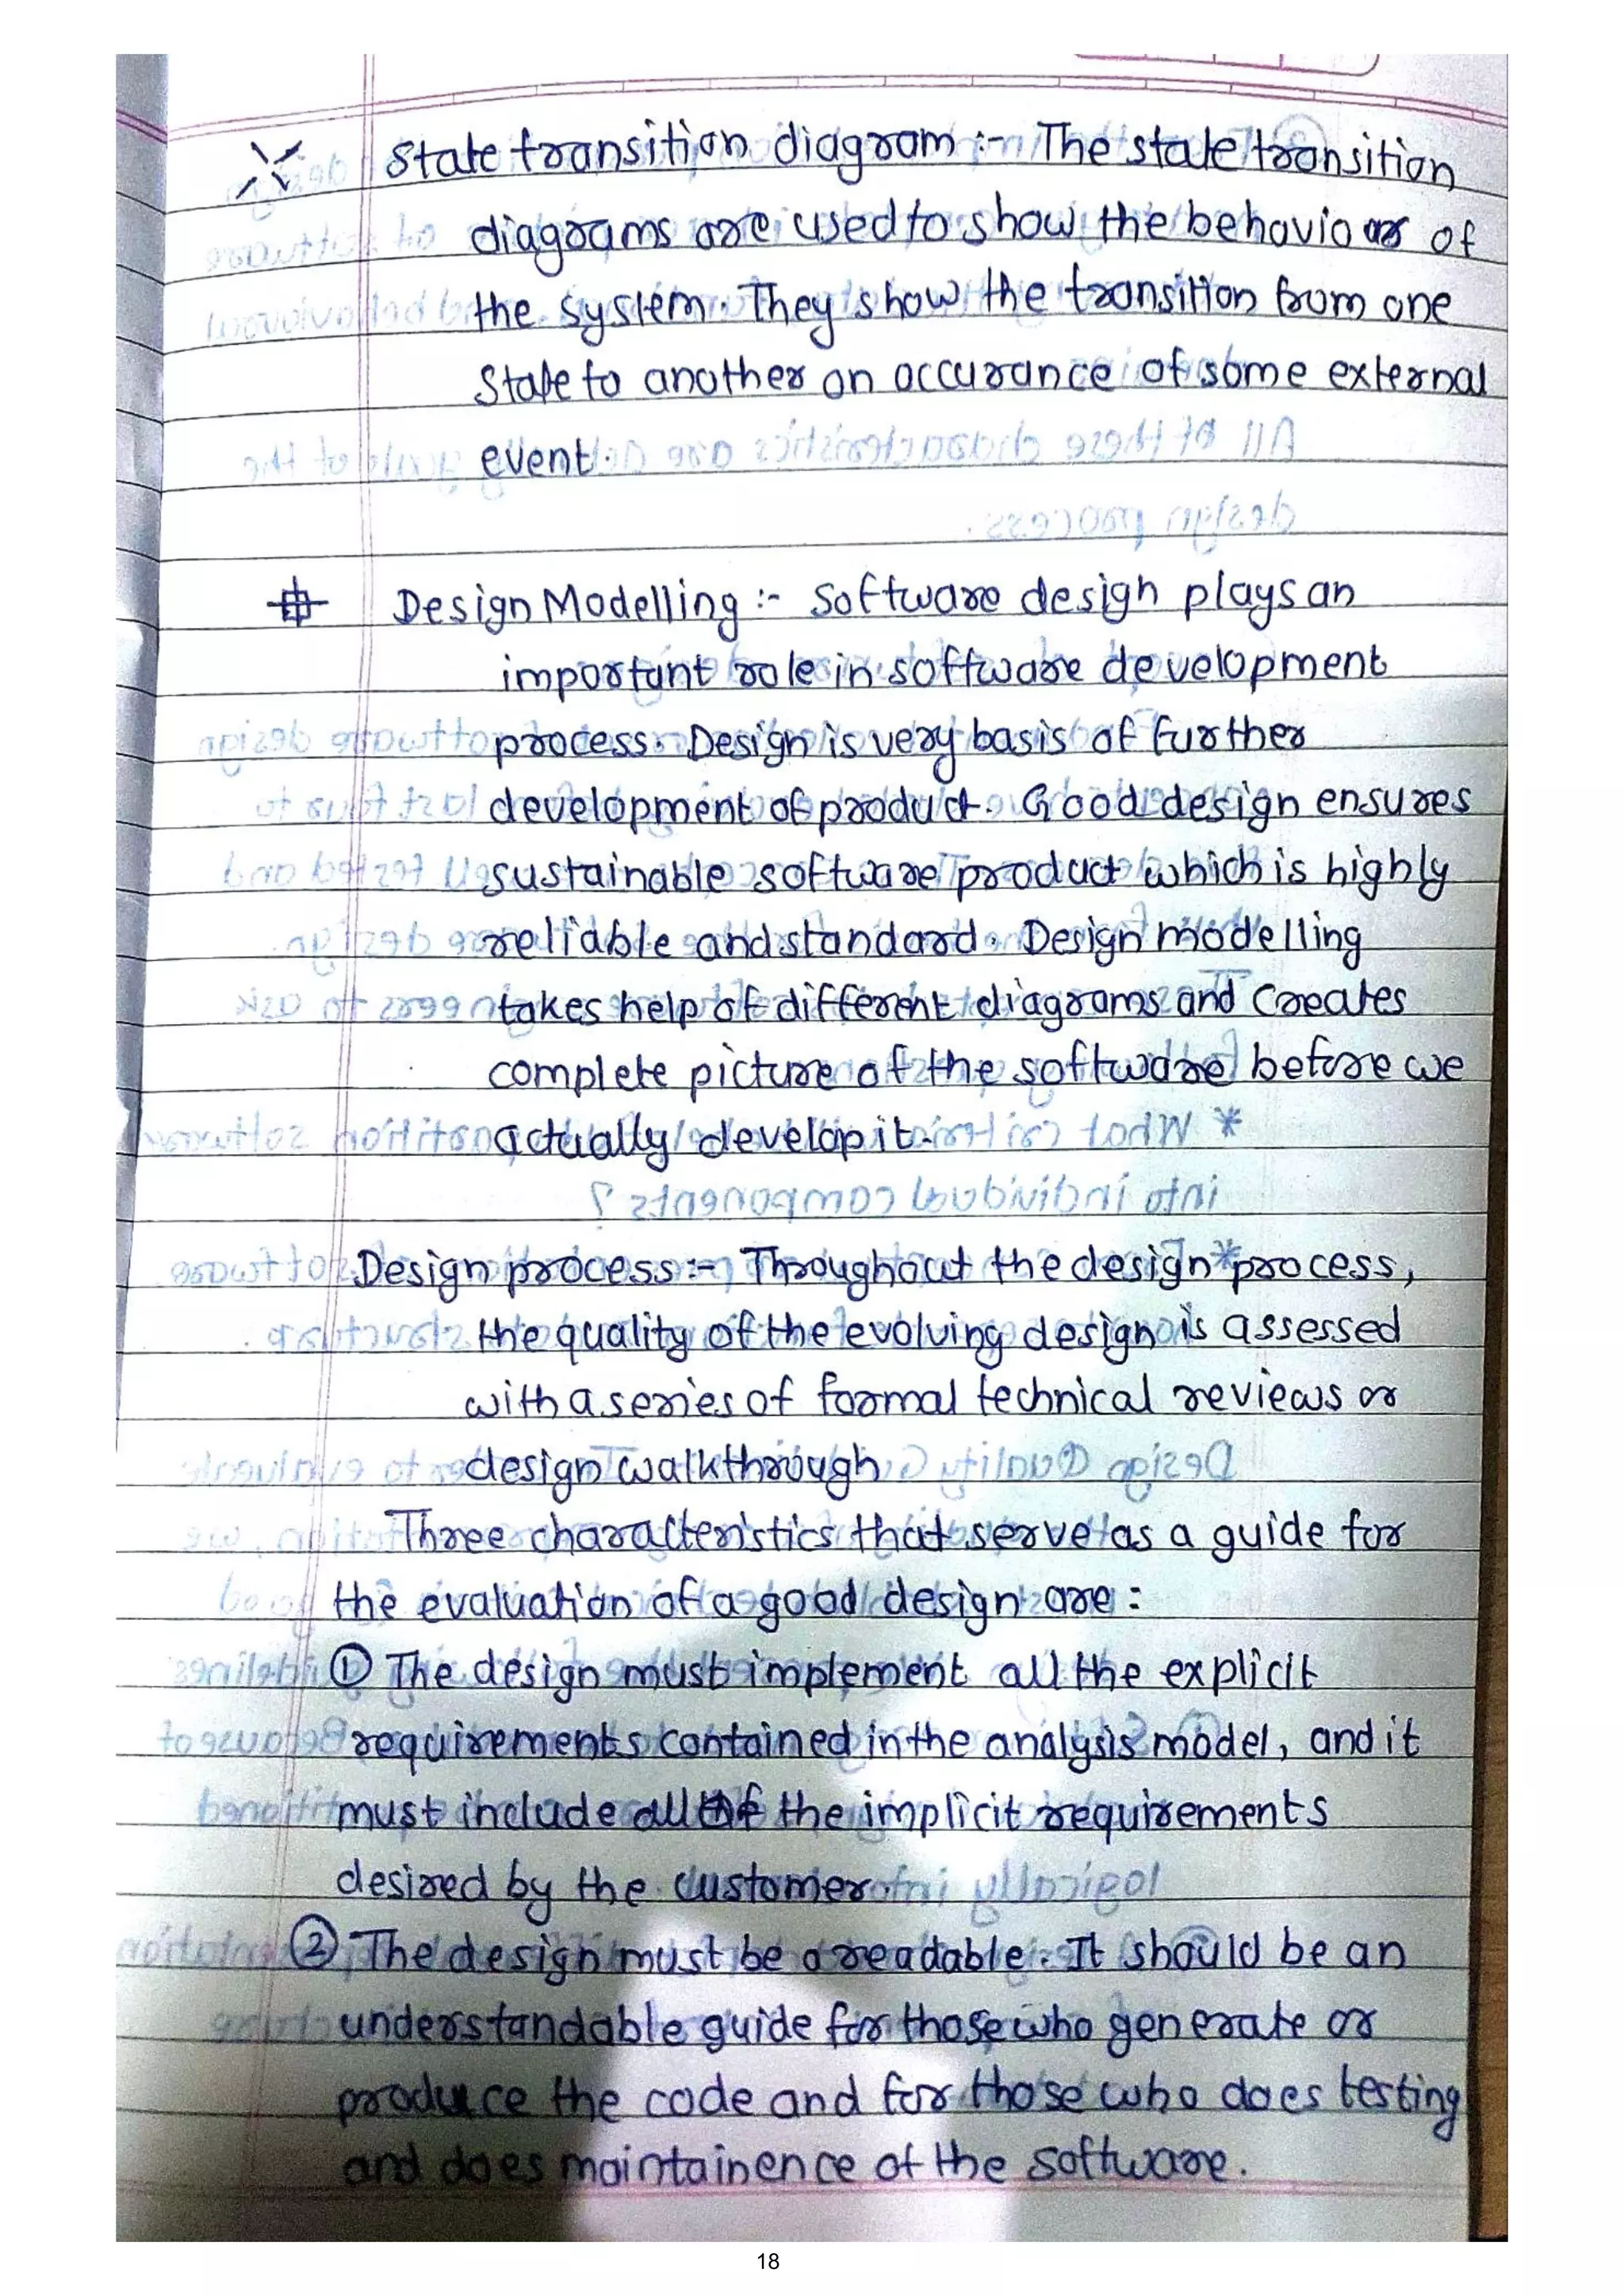 State transition diagram :- The state transition
diagrams are used to show the behaviour of
the system. They show the transition from one
State to another on occurance of some external
event.
Design Modelling :- Software design plays an
important role in software development
process. Design is very basis of further
development of product. Good design ensures
sustainable software product which is highly
reliable and standard. Design modelling
takes help of different diagrams and Creates
complete picture of the software before we
actually develop it.
Design process :- Throughout the design process,
the quality of the evolving design is assessed
with a series of formal technical reviews or
design walkthrough
Three characteristics that serve as a guide for
the evaluation of a good design are :
① The design must implement all the explicit
requirements contained in the analysis model, and it
must include all of the implicit requirements
desired by the customer.
② The design must be a readable. It should be an
understandable guide for those who generate or
produce the code and for those who does testing
and does maintainence of the software.
18